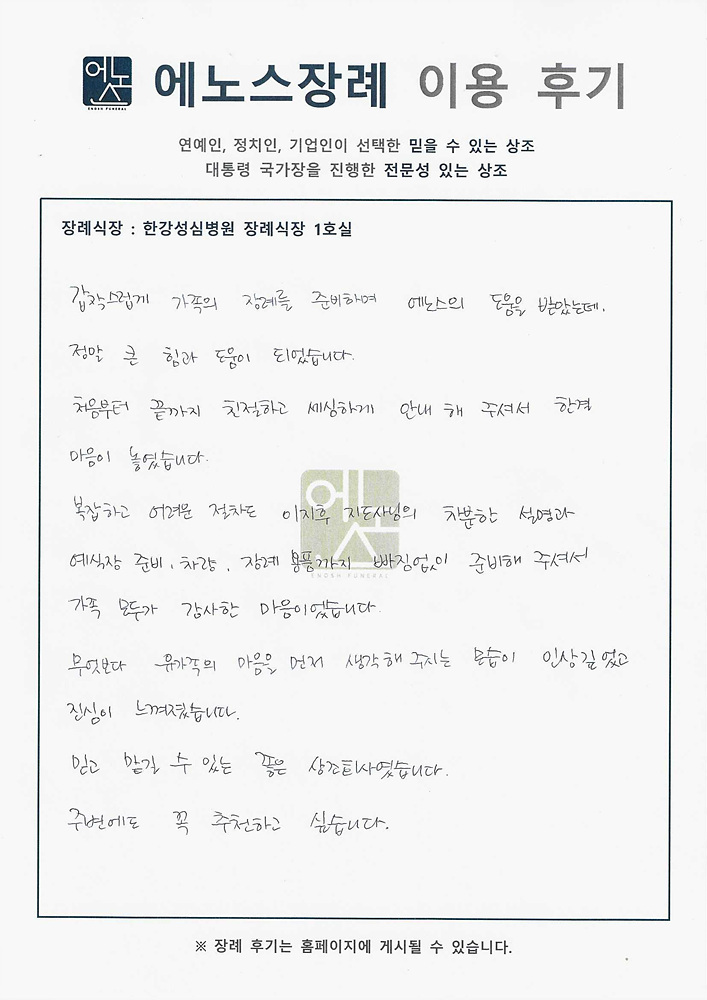 에노스
ENOSH FUNERAL
에노스장례 이용 후기
연예인, 정치인, 기업인이 선택한 믿을 수 있는 상조
대통령 국가장을 진행한 전문성 있는 상조
장례식장 : 한강성심병원 장례식장 1호실
갑작스럽게 가족의 장례를 준비하며 에노스의 도움을 받았는데,
정말 큰 힘과 도움이 되었습니다.
처음부터 끝까지 친절하고 세심하게 안내 해 주셔서 한결
마음이 놓였습니다.
복잡하고 어려운 절차도 이지후 지도사님의 차분한 설명과
예식장 준비, 차량, 장례 용품까지 빠짐없이 준비해 주셔서
가족 모두가 감사한 마음이었습니다.
무엇보다 유가족의 마음을 먼저 생각해 주시는 모습이 인상깊었고
진심이 느껴졌습니다.
믿고 맡길 수 있는 좋은 상조회사였습니다.
주변에도 꼭 추천하고 싶습니다.
에노스
ENOSH FUNERAL
※ 장례 후기는 홈페이지에 게시될 수 있습니다.